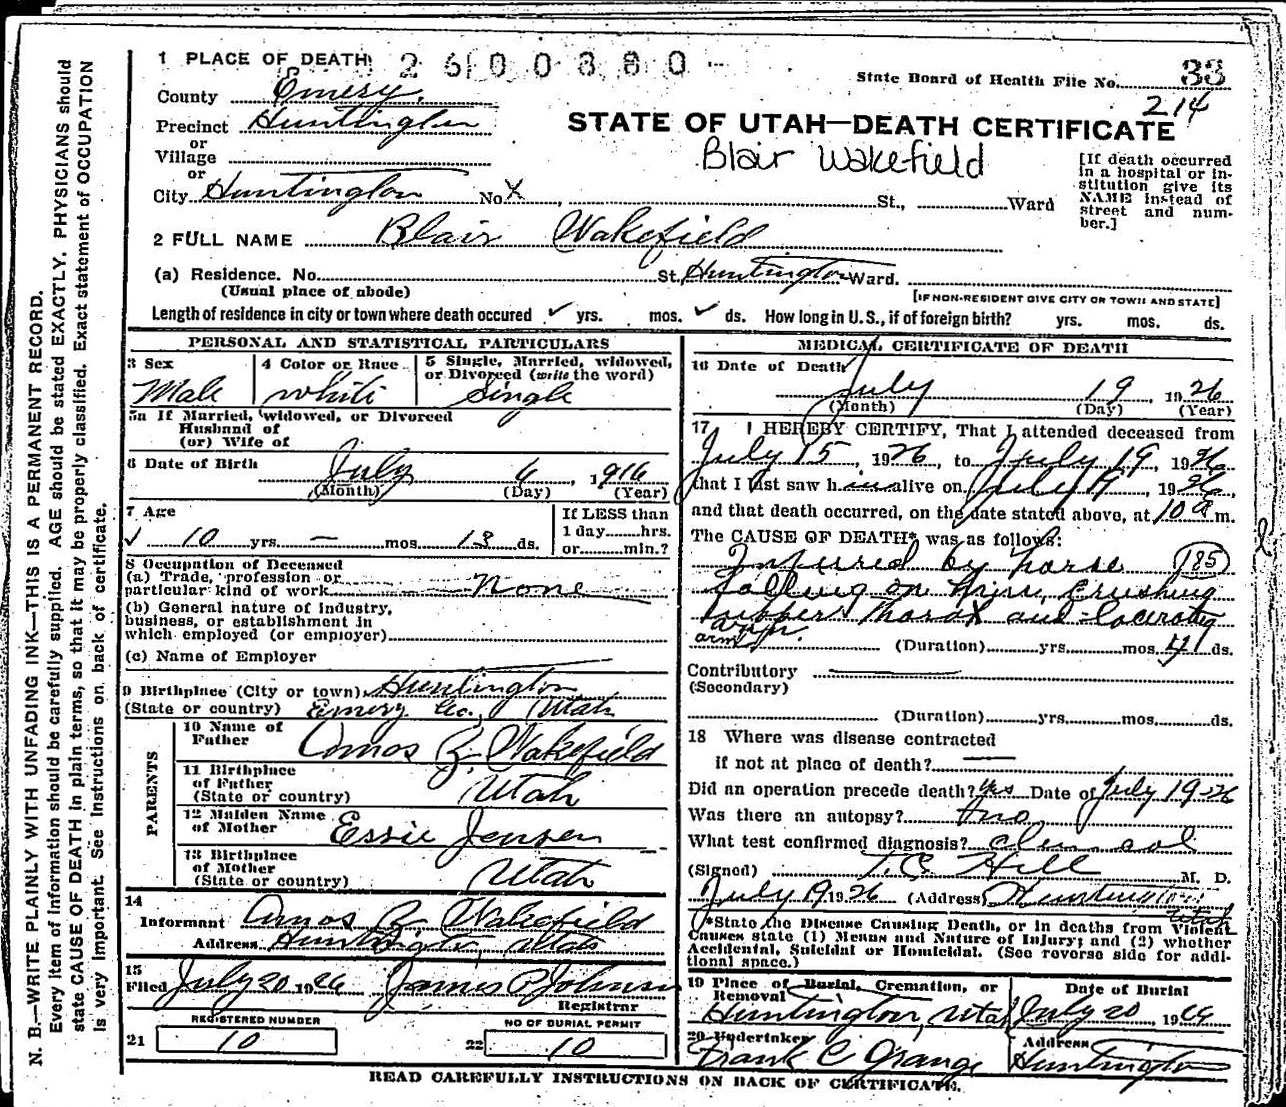 1 PLACE OF DEATH 2600380
State Board of Health File No. 33
214
County Emery
Precinct Huntington
or
Village
or
City Huntington No X St., Ward
STATE OF UTAH—DEATH CERTIFICATE
Blair Wakefield
[If death occurred in a hospital or in-
stitution give its
NAME instead of
street and num-
ber.]
2 FULL NAME Blair Wakefield
(a) Residence. No. St. Huntington Ward.
(Usual place of abode)
[IF NON-RESIDENT GIVE CITY OR TOWN AND STATE]
Length of residence in city or town where death occured ✓ yrs. mos. ✓ ds. How long in U.S., if of foreign birth? yrs. mos. ds.
PERSONAL AND STATISTICAL PARTICULARS
3 Sex
Male
4 Color or Race
white
5 Single, Married, widowed,
or Divorced (write the word)
Single
5a If Married, widowed, or Divorced
Husband of
(or) Wife of
6 Date of Birth
July 6, 1916
(Month) (Day) (Year)
7 Age
✓ 10 yrs. — mos. 13 ds.
If LESS than
1 day hrs.
or min.?
8 Occupation of Deceased
(a) Trade, profession or
particular kind of work None
(b) General nature of industry,
business, or establishment in
which employed (or employer)
(c) Name of Employer
9 Birthplace (City or town) Huntington
(State or country) Emery Co., Utah
PARENTS
10 Name of
Father Amos R. Wakefield
11 Birthplace
of Father
(State or country) Utah
12 Maiden Name
of Mother Essie Jensen
13 Birthplace
of Mother
(State or country) Utah
14
Informant Amos R. Wakefield
Address Huntington, Utah
15
Filed July 20 1926 James P Johnson
Registrar
REGISTERED NUMBER
21 10
NO OF BURIAL PERMIT
22 10
MEDICAL CERTIFICATE OF DEATH
16 Date of Death
July 19 1926
(Month) (Day) (Year)
17 I HEREBY CERTIFY, That I attended deceased from
July 15, 1926, to July 19, 1926
that I last saw him alive on July 19, 1926,
and that death occurred, on the date stated above, at 10 a m.
The CAUSE OF DEATH* was as follows:
Injured by horse 185
falling on him, crushing
upper thorax and lacerating
arm arm.
(Duration) yrs. mos. 4 ds.
Contributory
(Secondary)
(Duration) yrs. mos. ds.
18 Where was disease contracted
if not at place of death?
Did an operation precede death? yes Date of July 19 26
Was there an autopsy? no
What test confirmed diagnosis? clinical
(Signed) T. C. Hill M. D.
July 19 1926 (Address) Huntington
Utah
*State the Disease Causing Death, or in deaths from Violent
Causes state (1) Means and Nature of Injury; and (2) whether
Accidental, Suicidal or Homicidal. (See reverse side for addi-
tional space.)
19 Place of Burial, Cremation, or
Removal
Huntington, Utah
Date of Burial
July 20 1926
20 Undertaker
Frank C Grange
Address
Huntington
READ CAREFULLY INSTRUCTIONS ON BACK OF CERTIFICATE.
N. B.—WRITE PLAINLY WITH UNFADING INK—THIS IS A PERMANENT RECORD.
Every item of information should be carefully supplied. AGE should be stated EXACTLY. PHYSICIANS should
state CAUSE OF DEATH in plain terms, so that it may be properly classified. Exact statement of OCCUPATION
is very important. See Instructions on back of certificate.